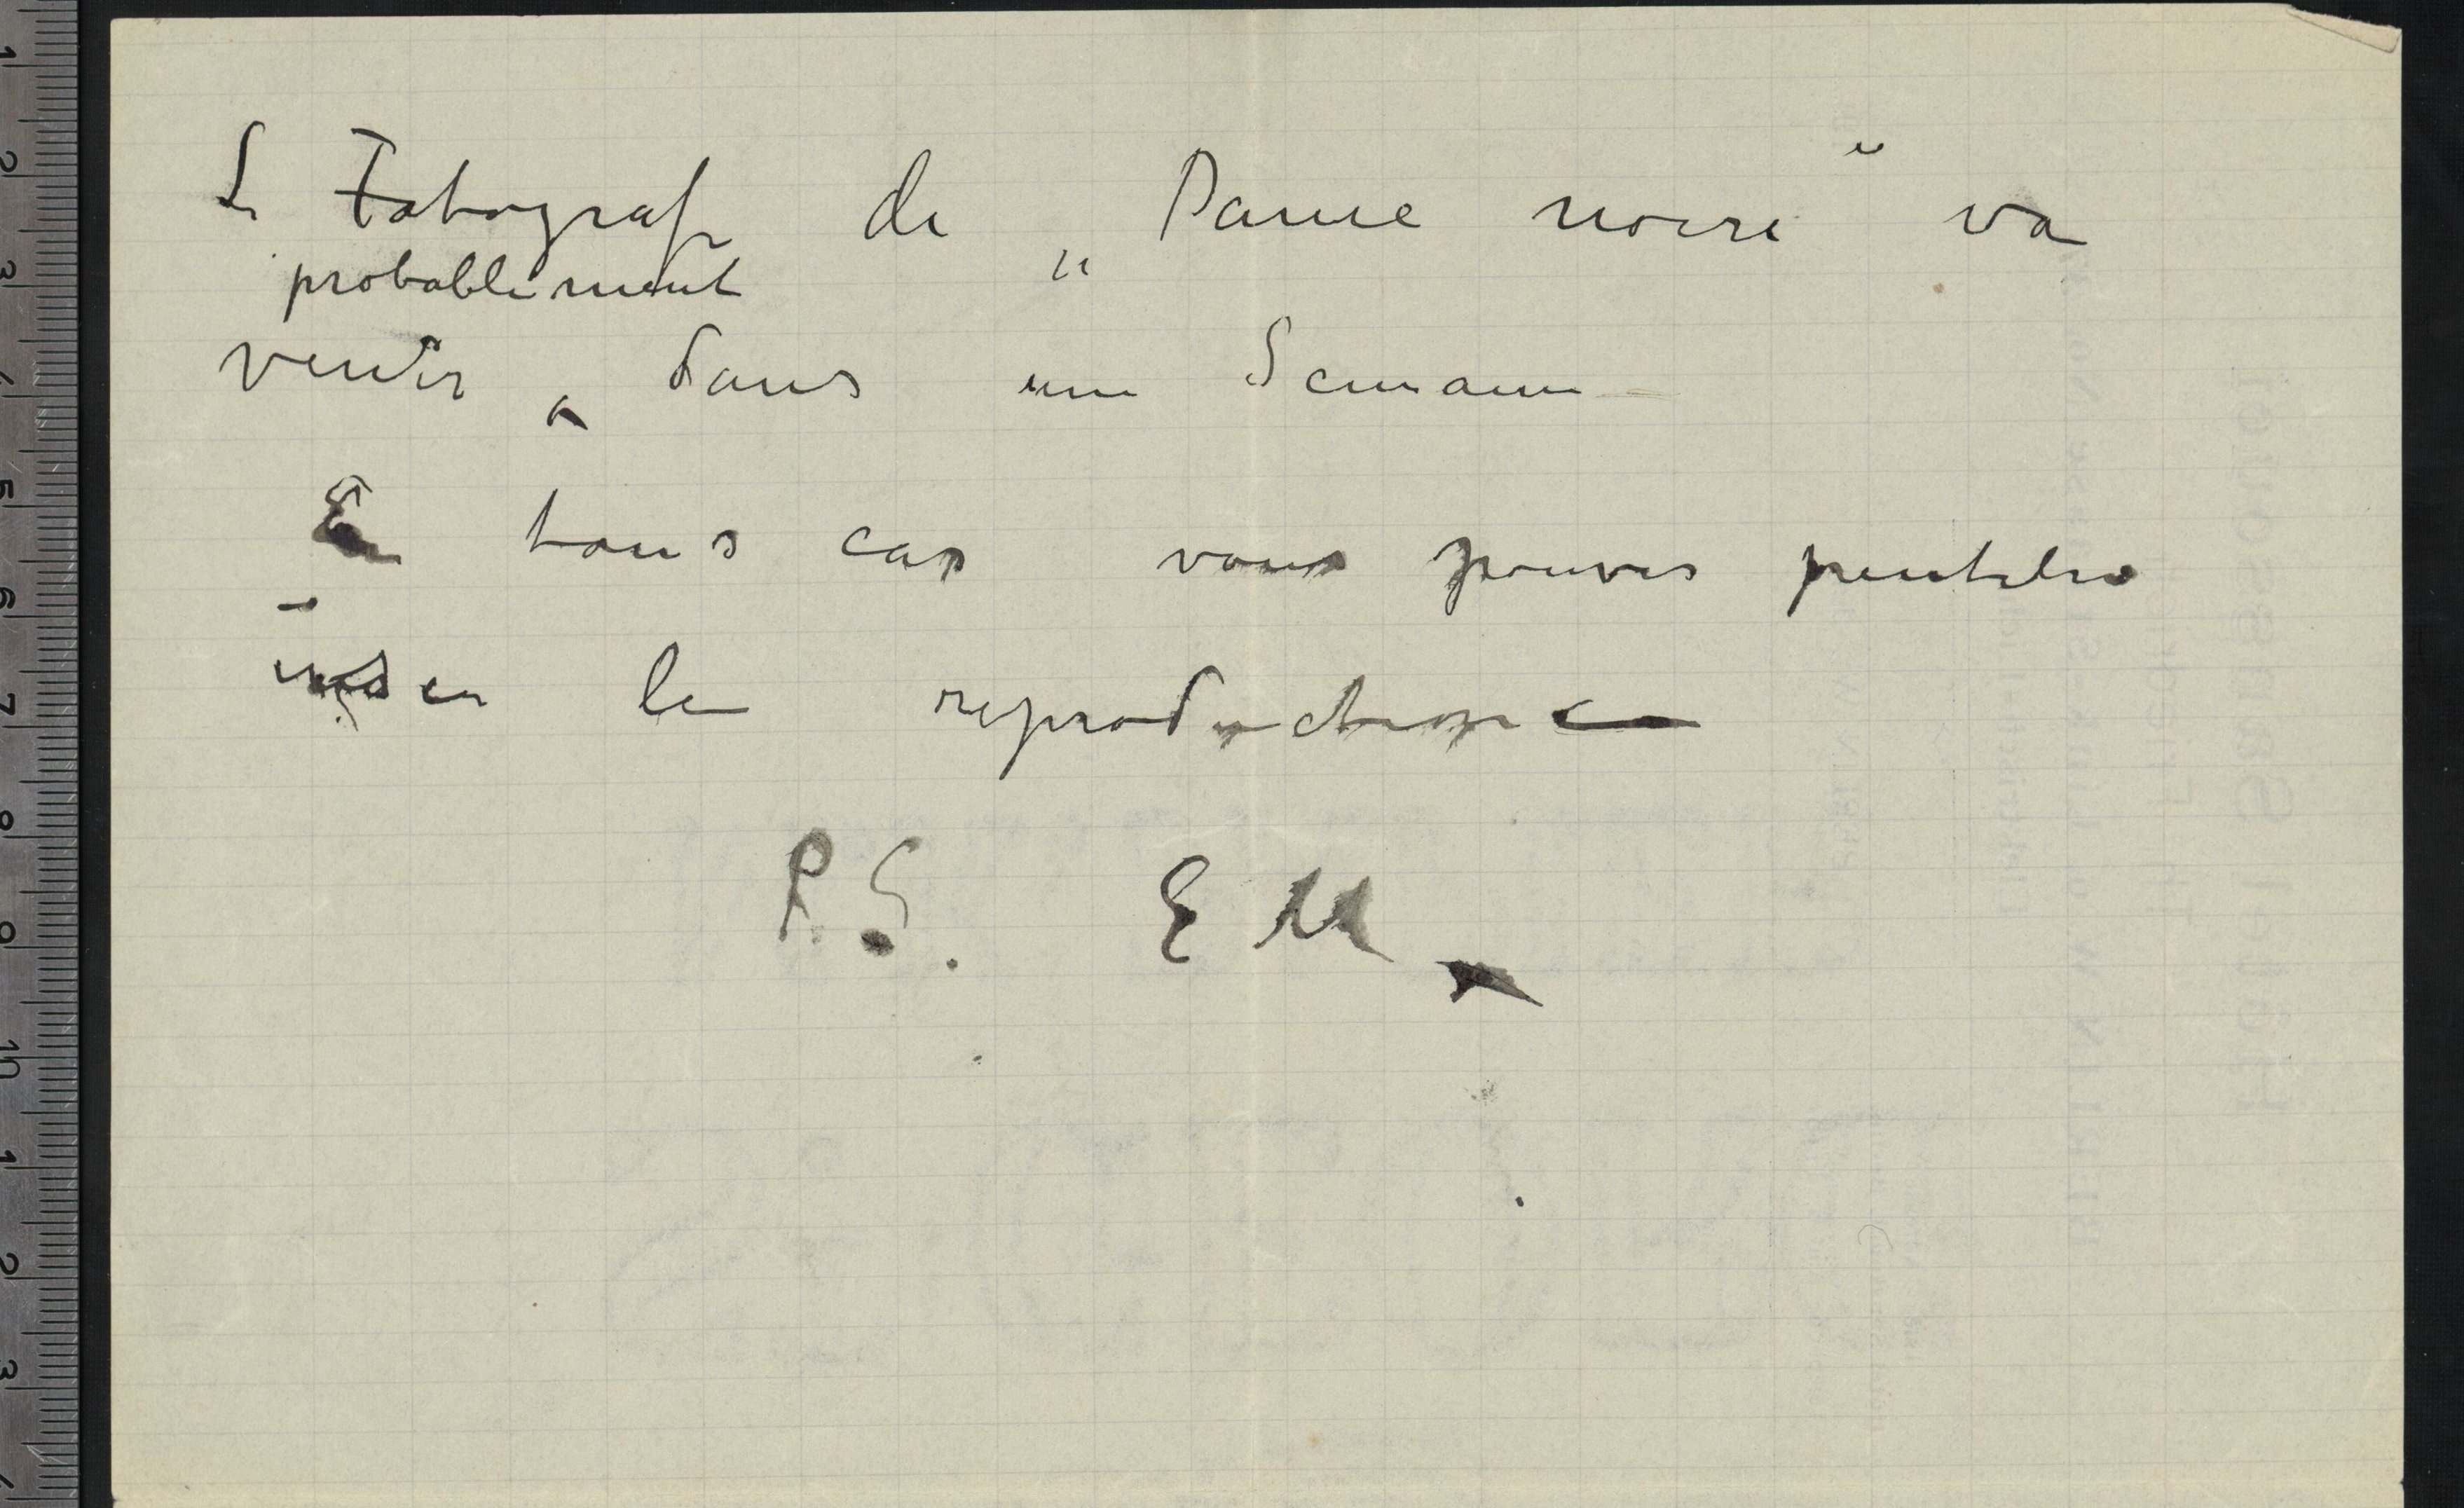 Le Fotografe de „Dame noire" va
probablement
venir dans une Semaine
En tous cas vous pouves peutetre
user le reproduction
P.S. EM